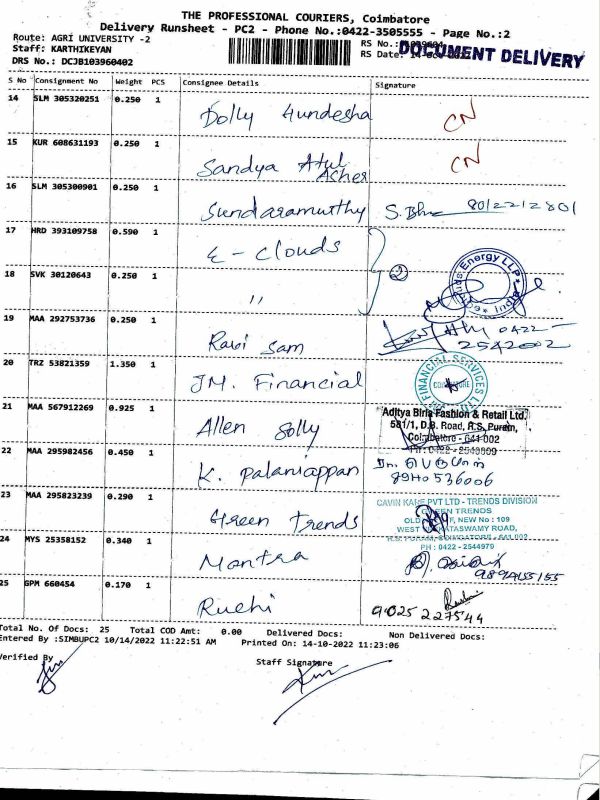 THE PROFESSIONAL COURIERS, Coimbatore
Delivery Runsheet - PC2 - Phone No.:0422-3505555 - Page No.:2
Route: AGRI UNIVERSITY -2
Staff: KARTHIKEYAN
DRS No.: DCJB103960402
RS No.:
RS Date: 14-
DOCUMENT DELIVERY
S No Consignment No Weight PCS Consignee Details Signature
14 SLM 305320251 0.250 1 Dolly Hundesha CN
15 KUR 608631193 0.250 1 Sandya Atul Asher CN
16 SLM 305300901 0.250 1 Sundaramurthy S.Bhu 8012212801
17 HRD 393109758 0.590 1 E - Clouds
2
18 SVK 30120643 0.250 1 "
Energy LLP
19 MAA 292753736 0.250 1 Ravi Sam 0422-
2542002
20 TRZ 53821359 1.350 1 JM. Financial
FINANCIAL SERVICES
21 MAA 567912269 0.925 1 Allen Solly
Aditya Birla Fashion & Retail Ltd.
581/1, D.B. Road, R.S. Puram,
Coimbatore - 641 002
22 MAA 295982456 0.450 1 K. Palaniappan
23 MAA 295823239 0.290 1 Green Trends
CAVIN KARE PVT LTD - TRENDS DIVISION
GREEN TRENDS
NEW No : 109
PH : 0422 - 2544979
24 MYS 25358152 0.340 1 Mantra
25 GPM 660454 0.170 1 Ruchi 9025 227544
Total No. Of Docs: 25 Total COD Amt: 0.00 Delivered Docs: Non Delivered Docs:
Entered By :SIMBUPC2 10/14/2022 11:22:51 AM Printed On: 14-10-2022 11:23:06
Verified By
Staff Signature